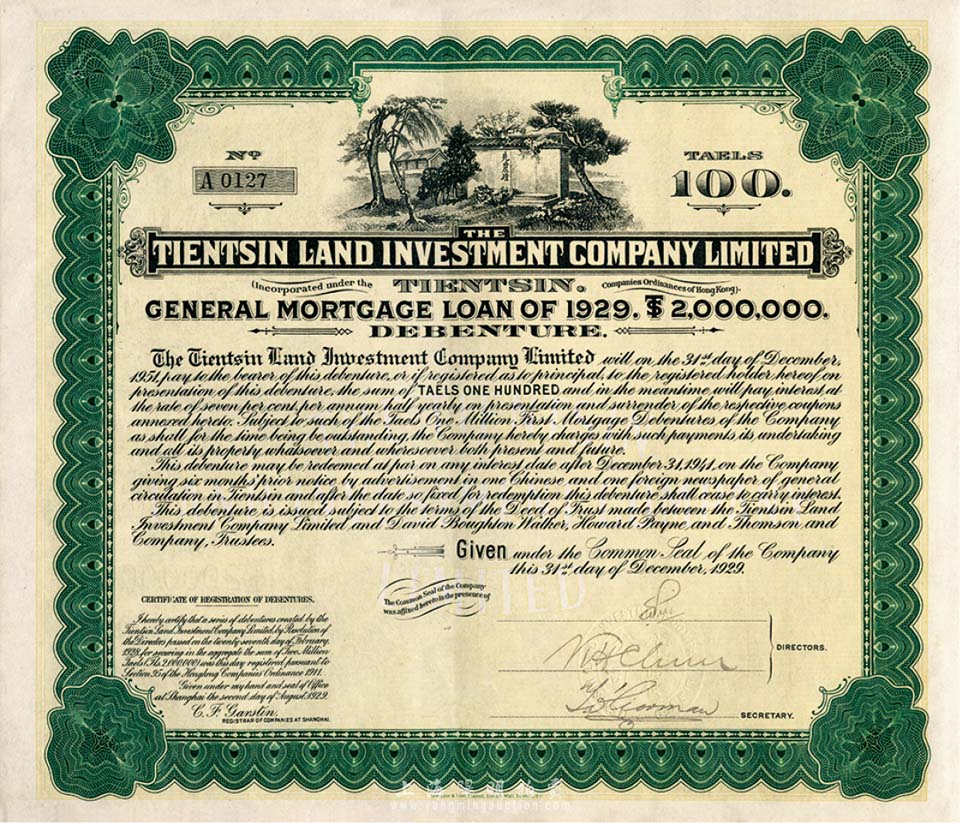 Nº
A 0127
TAELS
100.
THE
TIENTSIN LAND INVESTMENT COMPANY LIMITED
(Incorporated under the
TIENTSIN.
Companies Ordinances of Hong Kong).
GENERAL MORTGAGE LOAN OF 1929. T$ 2,000,000.
DEBENTURE.
The Tientsin Land Investment Company Limited will on the 31st day of December,
1951, pay to the bearer of this debenture, or if registered as to principal, to the registered holder hereof, on
presentation of this debenture, the sum of TAELS ONE HUNDRED and in the meantime will pay interest, at
the rate of seven per cent. per annum half yearly on presentation and surrender of the respective coupons
annexed hereto. Subject to such of the Taels One Million First Mortgage Debentures of the Company
as shall for the time being be outstanding, the Company hereby charges with such payments its undertaking
and all its property whatsoever and wheresoever both present and future.
This debenture may be redeemed at par on any interest date after December 31, 1941, on the Company
giving six months prior notice by advertisement in one Chinese and one foreign newspaper of general
circulation in Tientsin and after the date so fixed for redemption this debenture shall cease to carry interest.
This debenture is issued subject to the terms of the Deed of Trust made between the Tientsin Land
Investment Company Limited and David Boughton Walker, Howard Payne, and Thomson and
Company, Trustees.
Given under the Common Seal of the Company
this 31st day of December, 1929.
The Common Seal of the Company
was affixed hereto in the presence of
LIMITED
CERTIFICATE OF REGISTRATION OF DEBENTURES.
I hereby certify that a series of debentures created by the
Tientsin Land Investment Company Limited, by Resolution of
the Directors passed on the twenty seventh day of February,
1928, for securing in the aggregate the sum of Two Million
Taels (Tls. 2,000,000) was this day registered pursuant to
Section 95 of the Hongkong Companies Ordinance 1911.
Given under my hand and seal of Office
at Shanghai the second day of August, 1929.
C. F. Garstin,
REGISTRAR OF COMPANIES AT SHANGHAI.
DIRECTORS.
SECRETARY.
www.yangmingauction.com